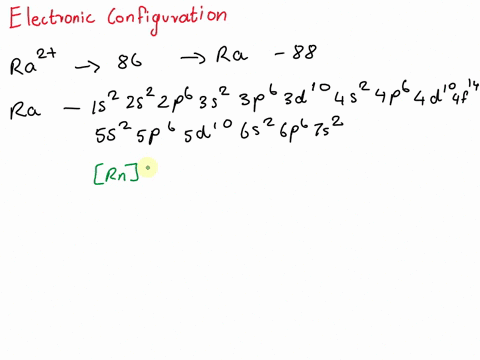 Electronic Configuration
Ra²⁺ → 86 → Ra - 88
Ra - 1s² 2s² 2p⁶ 3s² 3p⁶ 3d¹⁰ 4s² 4p⁶ 4d¹⁰ 4f¹⁴
5s² 5p⁶ 5d¹⁰ 6s² 6p⁶ 7s²
[Rn]